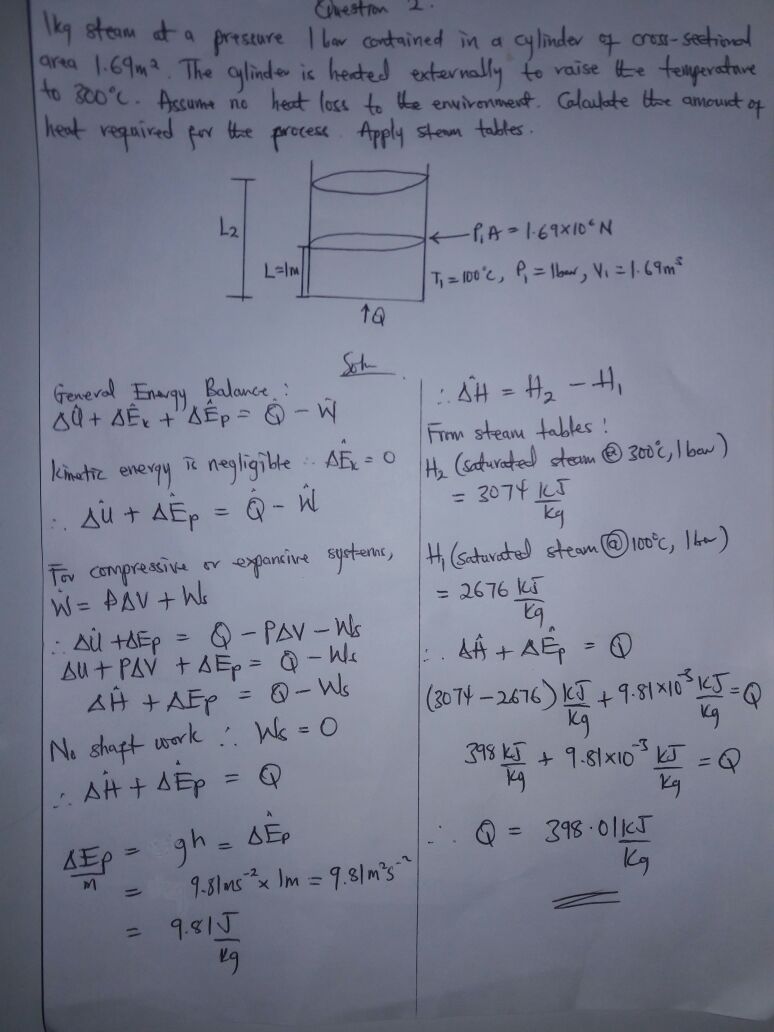 Question 2.
1kg steam at a pressure 1 bar contained in a cylinder of cross-sectional
area 1.69m². The cylinder is heated externally to raise the temperature
to 300°C. Assume no heat loss to the environment. Calculate the amount of
heat required for the process. Apply steam tables.
L₂
L=1m
P₁A = 1.69×10⁶N
T₁ = 100°C, P₁ = 1bar, V₁ = 1.69m³
↑Q
Soln
General Energy Balance:
ΔÛ + ΔÊₖ + ΔÊp = Q̂ - Ŵ
kinetic energy is negligible ∴ ΔÊₖ = 0
∴ ΔÛ + ΔÊp = Q̂ - Ŵ
For compressive or expansive systems,
Ŵ = PΔV + Ws
∴ ΔÛ + ΔEp = Q - PΔV - Ws
ΔU + PΔV + ΔEp = Q - Ws
ΔĤ + ΔEp = Q - Ws
No shaft work ∴ Ws = 0
∴ ΔĤ + ΔÊp = Q
ΔEp/m = gh = ΔÊp
= 9.81ms⁻² × 1m = 9.81m²s⁻²
= 9.81 J/kg
∴ ΔĤ = H₂ - H₁
From steam tables:
H₂ (saturated steam @ 300°C, 1 bar)
= 3074 kJ/kg
H₁ (saturated steam @ 100°C, 1 bar)
= 2676 kJ/kg
∴ ΔĤ + ΔÊp = Q
(3074 - 2676) kJ/kg + 9.81×10⁻³ kJ/kg = Q
398 kJ/kg + 9.81×10⁻³ kJ/kg = Q
∴ Q = 398.01 kJ/kg